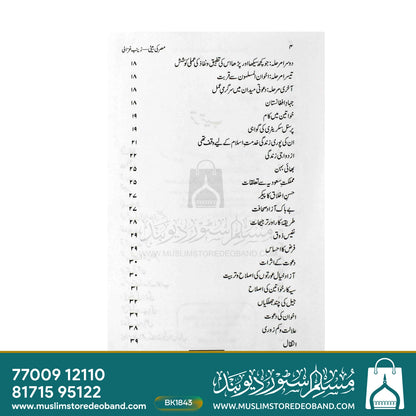 ۴
مصر کی بیٹی — زینب غزالی
دوسرا مرحلہ: جو کچھ سیکھا اور پڑھا اس کی تطبیق و نفاذ کی عملی کوشش ۱۸
تیسرا مرحلہ: اخوان المسلمون سے قربت ۱۸
آخری مرحلہ: دعوتی میدان میں سرگرمِ عمل ۱۸
جہادِ افغانستان ۱۸
خواتین میں کام ۱۹
پرسنل سکریٹری کی گواہی ۱۹
ان کی پوری زندگی خدمتِ اسلام کے لیے وقف تھی ۲۱
ازدواجی زندگی ۲۲
بھائی بہن ۲۵
مملکت سعودیہ سے تعلقات ۲۵
حسنِ اخلاق کا پیکر ۲۷
بے باک آزاد صحافت ۲۷
طریقۂ کار اور ترجیحات ۲۸
نفیس ذوق ۲۹
فرض کا احساس ۲۹
دعوت کے اثرات ۳۰
آزاد خیال عورتوں کی اصلاح و تربیت ۳۰
سیہ کار خواتین کی اصلاح ۳۱
جیل کی چند جھلکیاں ۳۲
اخوان کی دعوت ۳۶
علالت و کم زوری ۳۸
انتقال ۳۹
مسلم اسٹور دیوبند
WWW.MUSLIMSTOREDEOBAND.COM
77009 12110
81715 95122
BK1843
www.muslimstoredeoband.com
مسلم اسٹور دیوبند